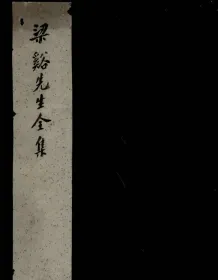 梁谿先生全集